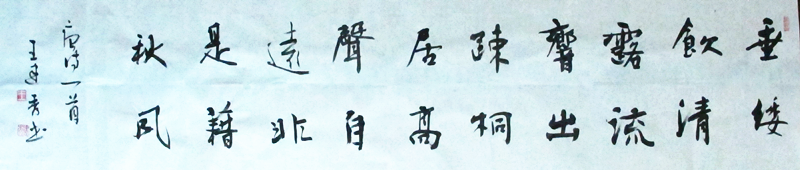 垂緌
飲清
露流
響出
疎桐
居高
聲自
遠非
是藉
秋风
唐诗一首
王建书